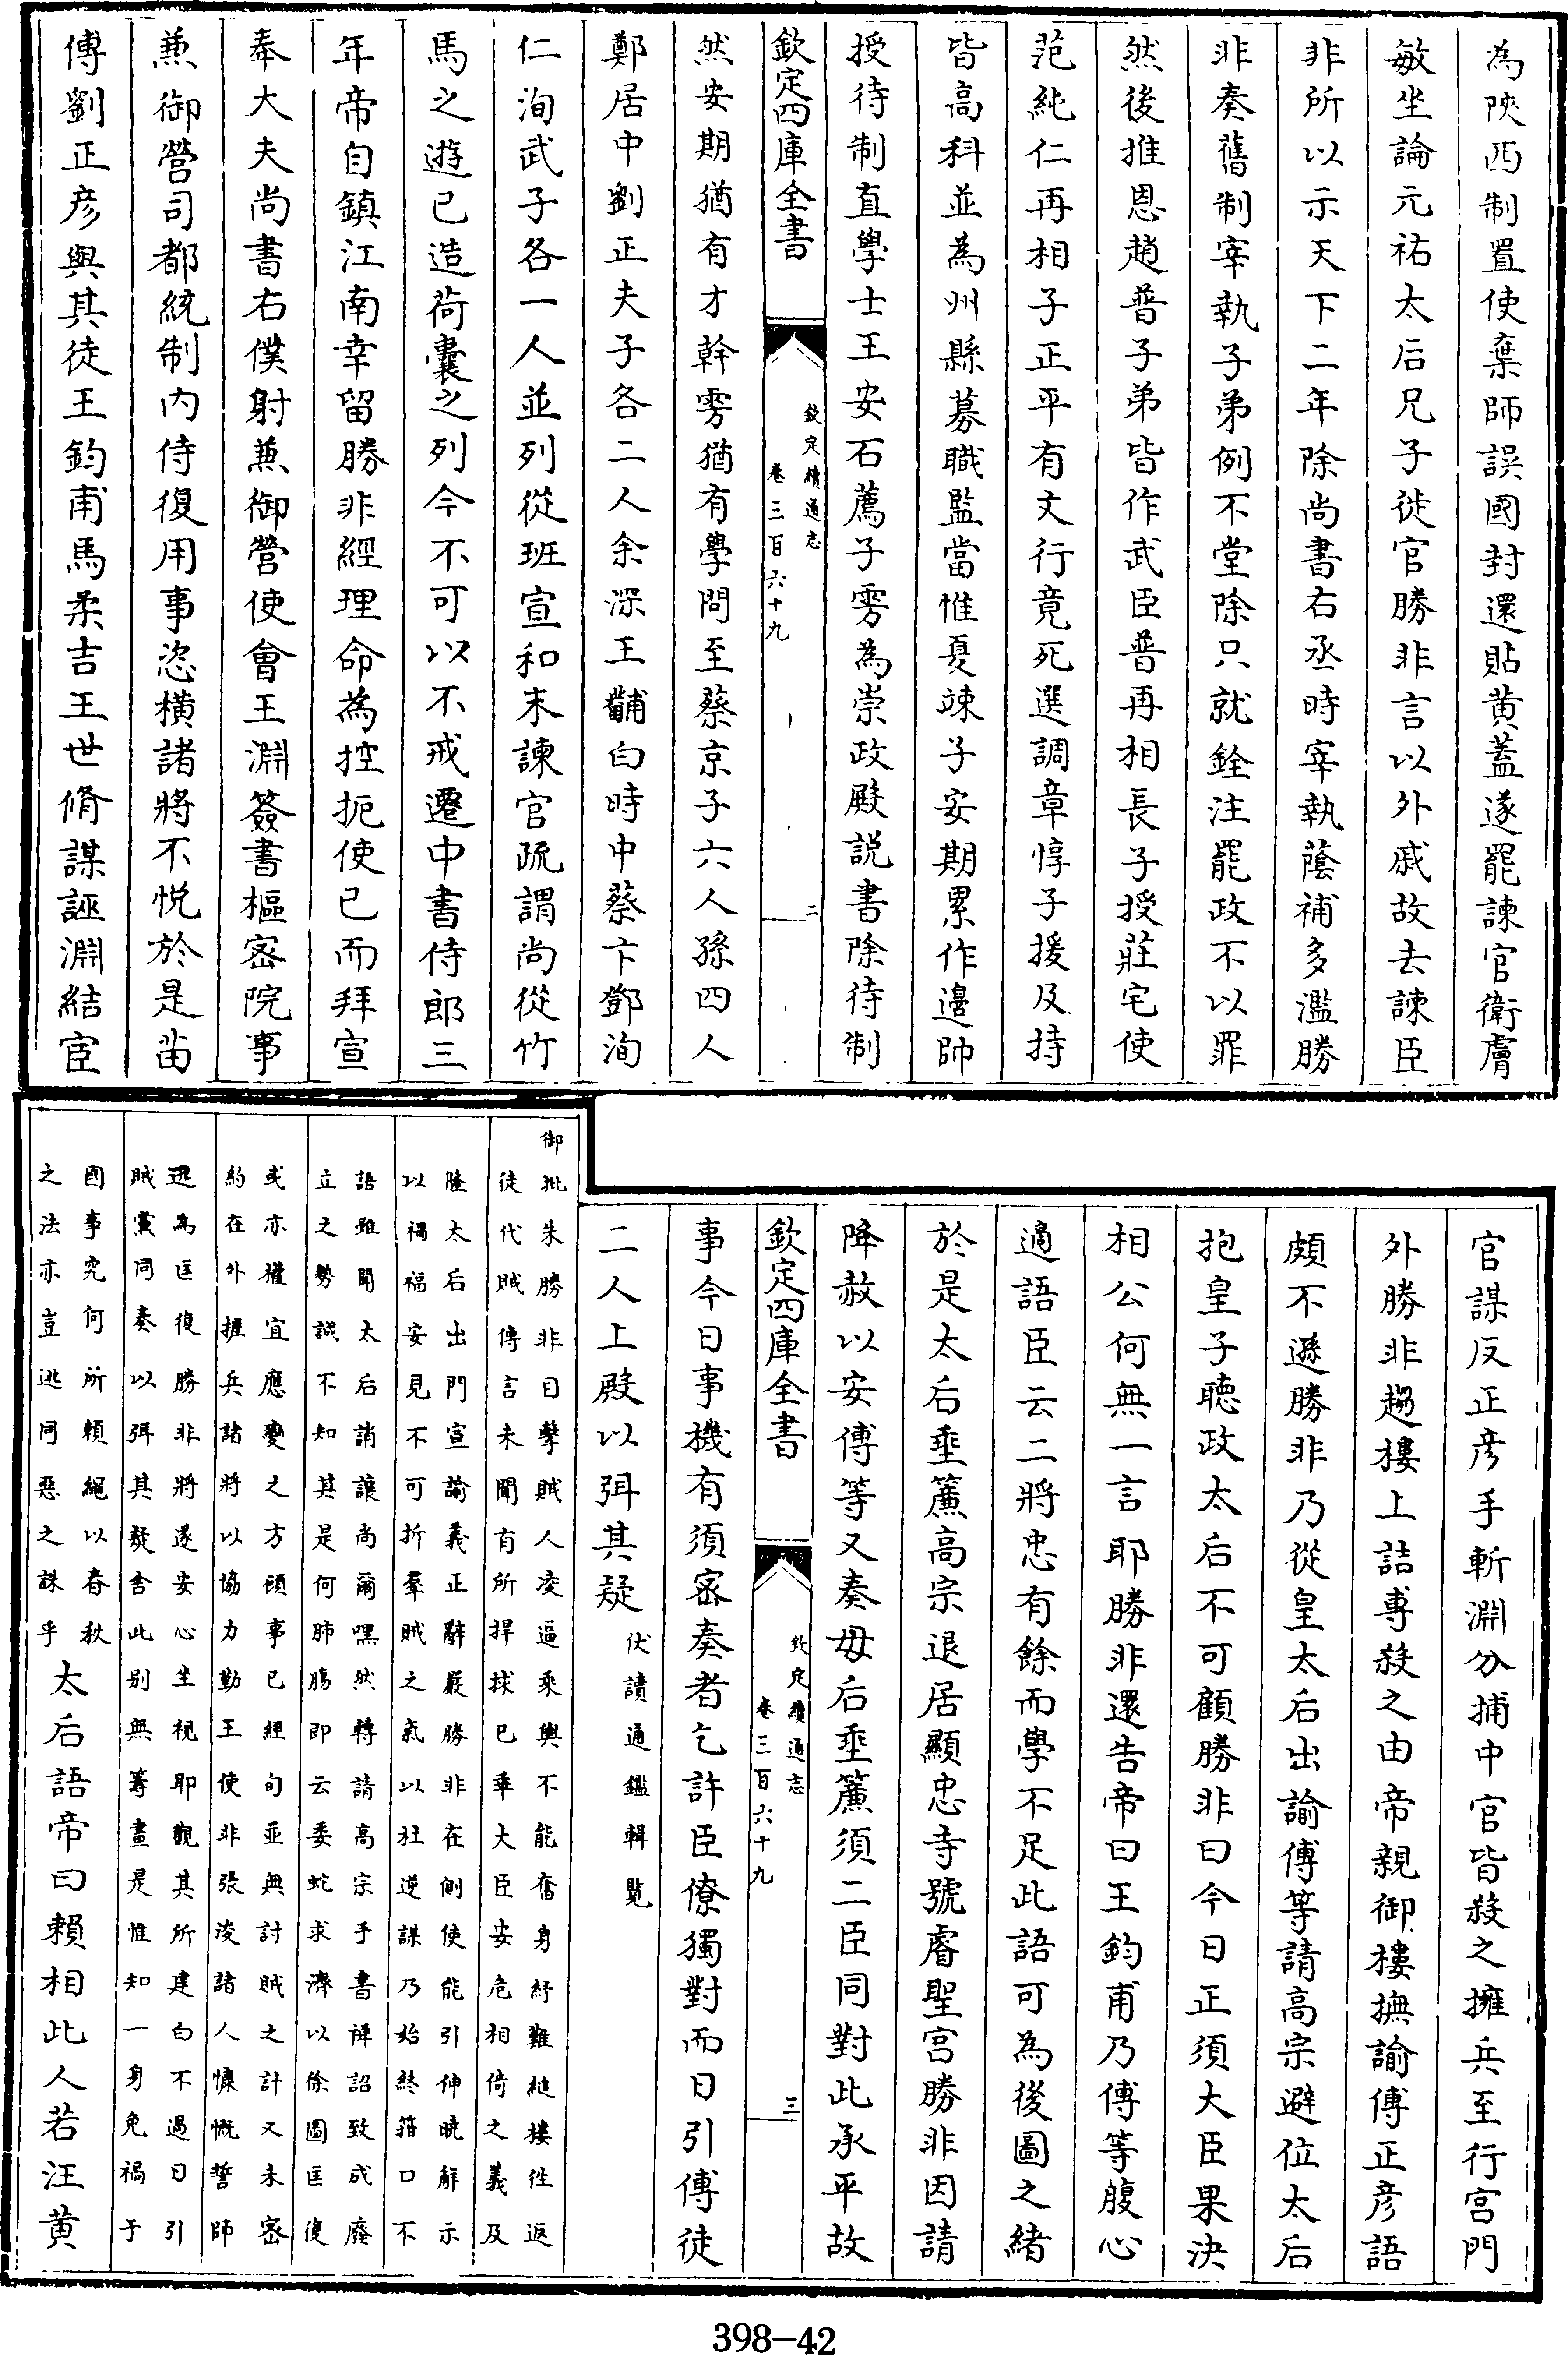 為陜西制置使棄師誤國封還貼黄蓋遂罷諫官衛膚
敏坐論元祐太后兄子徙官勝非言以外戚故去諫臣
非所以示天下二年除尚書右丞時宰執蔭補多濫勝
非奏舊制宰執子弟例不堂除只就銓注罷政不以罪
然後推恩趙普子弟皆作武臣普再相長子授莊宅使
范純仁再相子正平有文行竟死選調章惇子援及持
皆高科並為州縣募職監當惟夏竦子安期累作邊帥
授待制直學士王安石薦子雱為崇政殿説書除待制
欽定四庫全書
欽定續通志
卷三百六十九
二
然安期猶有才幹雱猶有學問至蔡京子六人孫四人
鄭居中劉正夫子各二人余深王黼白時中蔡卞鄧洵
仁洵武子各一人並列從班宣和末諫官疏謂尚從竹
馬之遊已造荷囊之列今不可以不戒遷中書侍郎三
年帝自鎮江南幸留勝非經理命為控扼使已而拜宣
奉大夫尚書右僕射兼御營使會王淵簽書樞密院事
兼御營司都統制内侍復用事恣横諸將不悦於是苗
傅劉正彦與其徒王鈞甫馬柔吉王世脩謀誣淵結宦
官謀反正彦手斬淵分捕中官皆殺之擁兵至行宫門
外勝非趨樓上詰專殺之由帝親御樓撫諭傅正彦語
頗不遜勝非乃從皇太后出諭傅等請高宗避位太后
抱皇子聽政太后不可顧勝非曰今日正須大臣果決
相公何無一言耶勝非還告帝曰王鈞甫乃傅等腹心
適語臣云二將忠有餘而學不足此語可為後圖之緒
於是太后垂簾高宗退居顯忠寺號睿聖宫勝非因請
降赦以安傅等又奏毋后垂簾須二臣同對此承平故
欽定四庫全書
欽定續通志
卷三百六十九
三
事今日事機有須密奏者乞許臣僚獨對而日引傅徒
二人上殿以弭其疑伏讀通鑑輯覽
御批朱勝非目擊賊人凌逼乘輿不能奮身紓難縋樓往返
徒代賊傳言未聞有所捍捄已乖大臣安危相倚之義及
隆太后出門宣諭義正辭嚴勝非在側使能引伸曉解示
以禍福安見不可折羣賊之氣以杜逆謀乃始終箝口不
語雖聞太后誚讓尚爾嘿然轉請高宗手書禪詔致成廢
立之勢誠不知其是何肺腸即云委蛇求濟以徐圖匡復
或亦權宜應變之方頋事已經旬並無討賊之計又未密
約在外握兵諸將以協力勤王使非張浚諸人慷慨誓師
迅為匡復勝非將遂安心坐視耶觀其所建白不過日引
賊黨同奏以弭其疑舍此别無籌畫是惟知一身免禍于
國事究何所頼繩以春秋
之法亦豈逃同惡之誅乎太后語帝曰頼相此人若汪黄
398-42